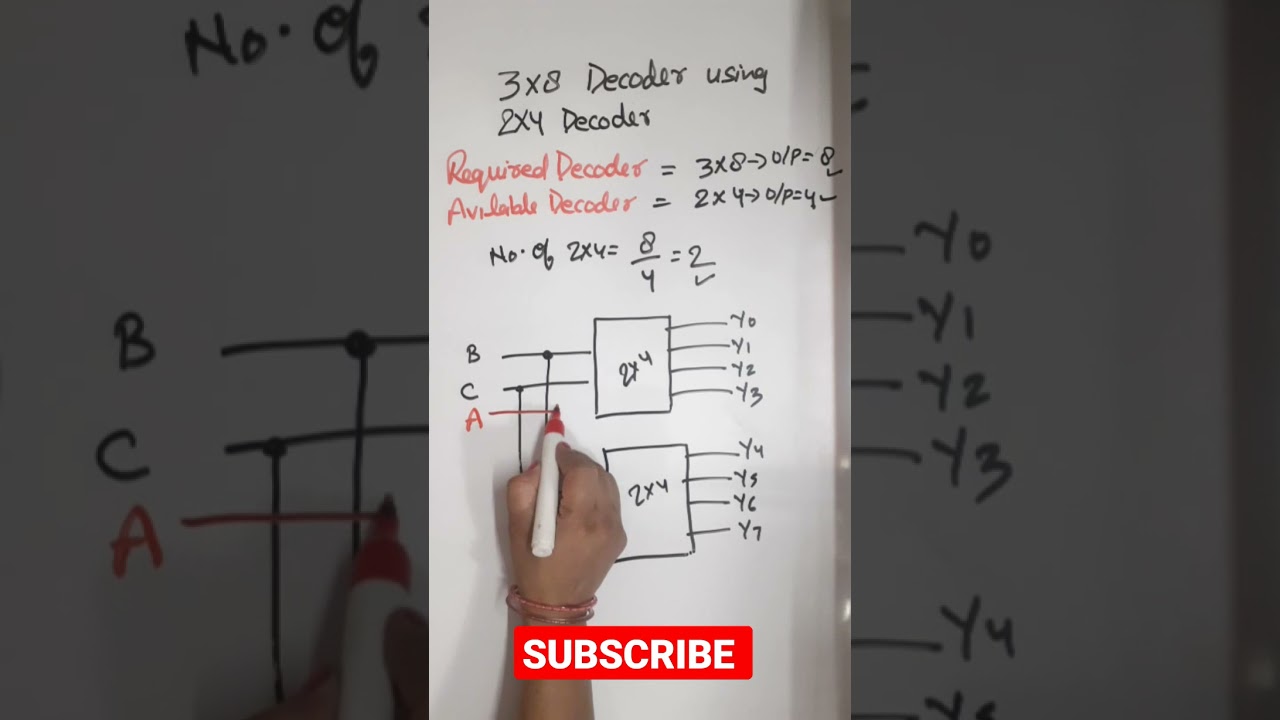 3x8 Decoder using
2x4 Decoder
Required Decoder = 3x8→O/P=8✓
Avilable Decoder = 2x4→O/P=4✓
No. of 2x4= 8/4 =2✓
B
C
A
2x4
Y0
Y1
Y2
Y3
2x4
Y4
Y5
Y6
Y7
SUBSCRIBE
No. of
B
C
A
Y0
Y1
Y2
Y3
Y4